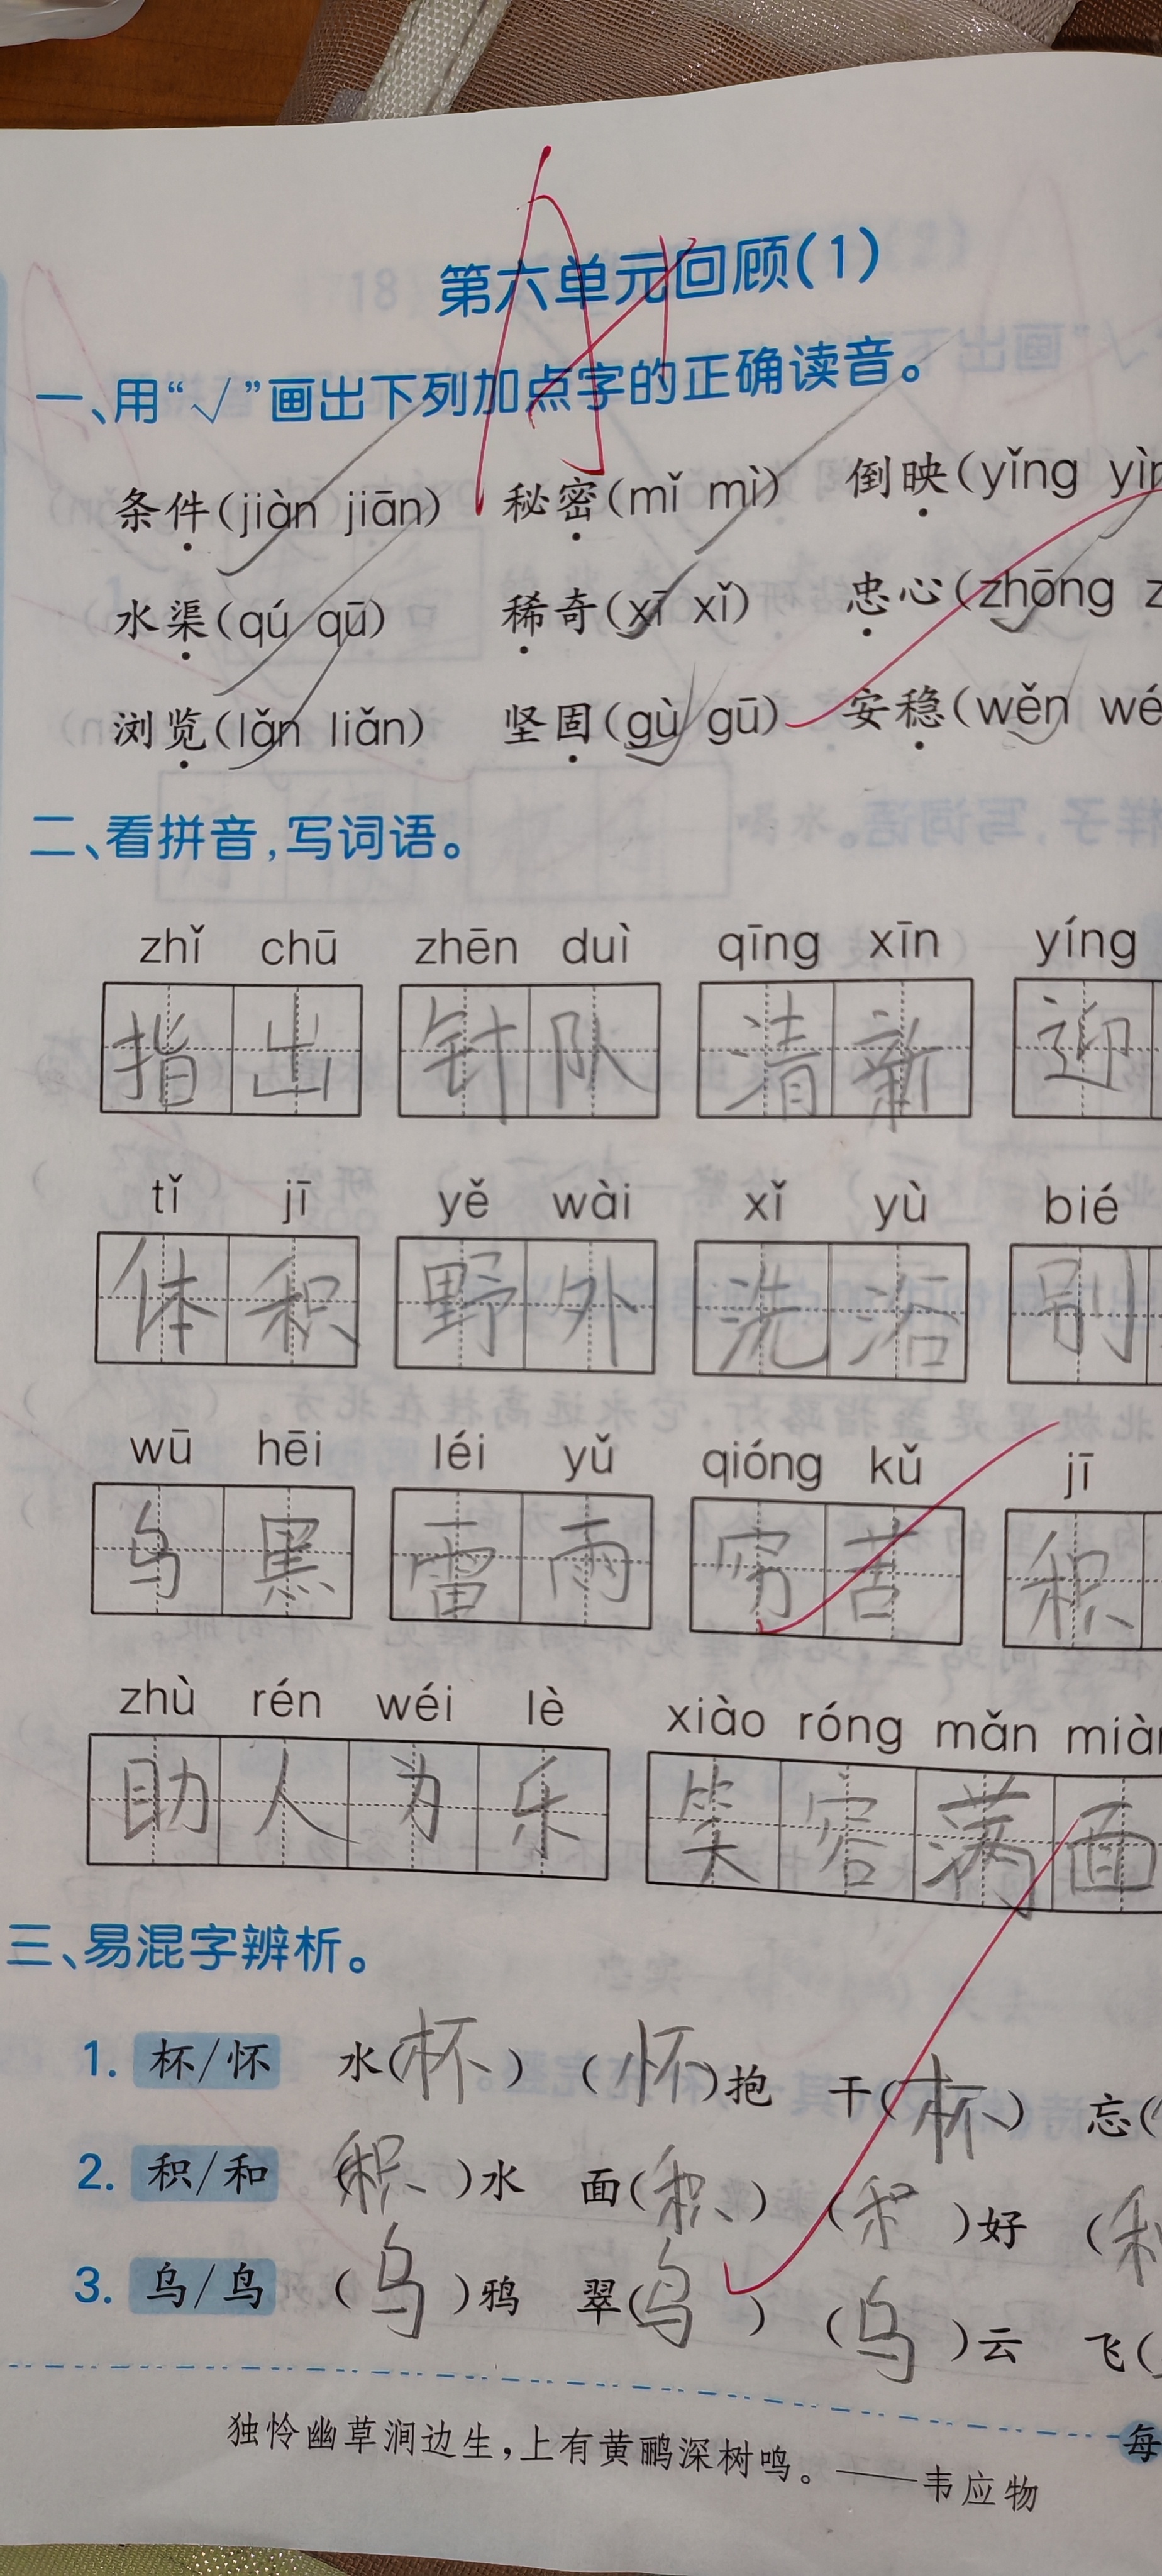 第六单元回顾(1)
一、用“√”画出下列加点字的正确读音。
条件(jiàn jiān) 秘密(mǐ mì) 倒映(yǐng yìn
水渠(qú qū) 稀奇(xī xǐ) 忠心(zhōng z
浏览(lǎn liǎn) 坚固(gù gū) 安稳(wěn wé
二、看拼音,写词语。
zhǐ chū zhēn duì qīng xīn yíng
指出 针队 清新 迎
tǐ jī yě wài xǐ yù bié
体积 野外 洗浴 别
wū hēi léi yǔ qióng kǔ jī
乌黑 雷雨 穷苦 积
zhù rén wéi lè xiào róng mǎn miàn
助人为乐 笑容满面
三、易混字辨析。
1. 杯/怀 水(杯) (怀)抱 干(杯) 忘(
2. 积/和 (积)水 面(积) (和)好 (积
3. 乌/鸟 (乌)鸦 翠(鸟) (乌)云 飞(
独怜幽草涧边生,上有黄鹂深树鸣。——韦应物
每